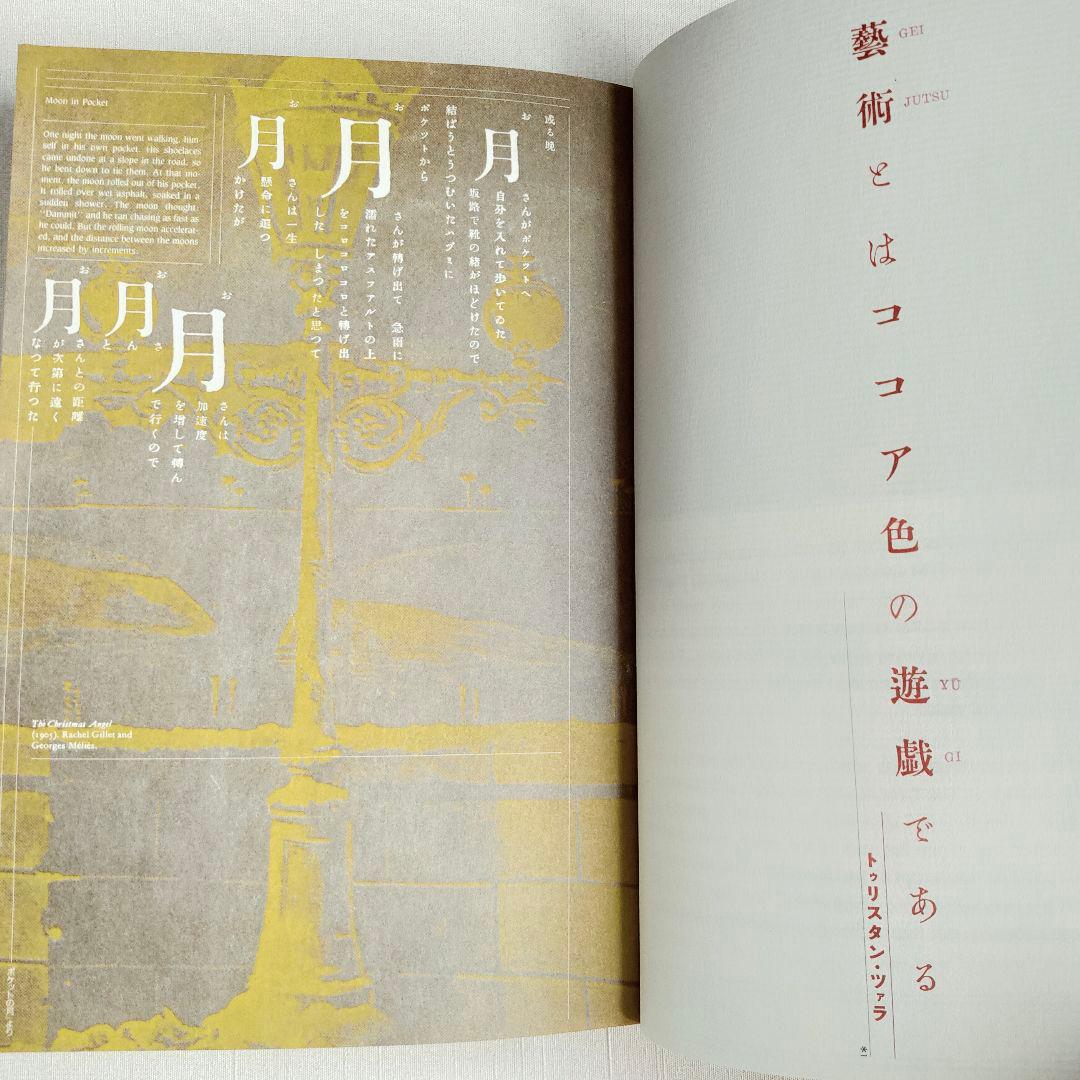 Moon in Pocket
One night the moon went walking, him-
self in his own pocket. His shoelaces
came undone at a slope in the road, so
he bent down to tie them. At that mo-
ment, the moon rolled out of his pocket.
It rolled over wet asphalt, soaked in a
sudden shower. The moon thought:
"Dammit" and he ran chasing as fast as
he could. But the rolling moon accelerat-
ed, and the distance between the moons
increased by increments.
或る晩
お月さんがポケツトへ
自分を入れて歩いてゐた
坂路で靴の緒がほどけたので
結ばうとうつむいたハヅミに
ポケツトから
お月さんが轉げ出て 急雨に
濡れたアスフアルトの上
をコロコロコロと轉げ出
した しまつたと思つて
お月さんは一生
懸命に追つ
かけたが
お月さんは
加速度
を増して轉ん
で行くので
お月さんと
お月さんとの距離
が次第に遠く
なつて行つた
The Christmas Angel
(1905). Rachel Gillet and
Georges Méliès.
「ポケットの月」より
藝術とはココア色の遊戯である
GEI
JUTSU
YŪ
GI
トゥリスタン・ツァラ
*1